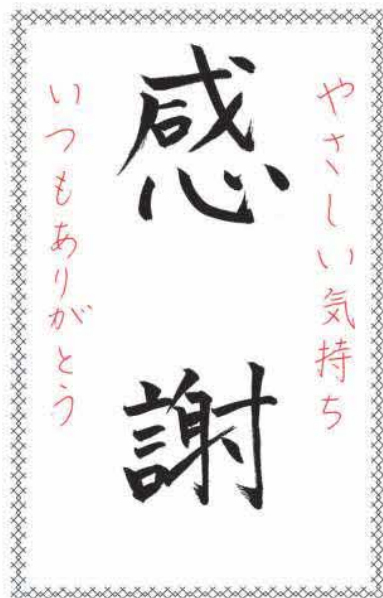 やさしい気持ち
感謝
いつもありがとう